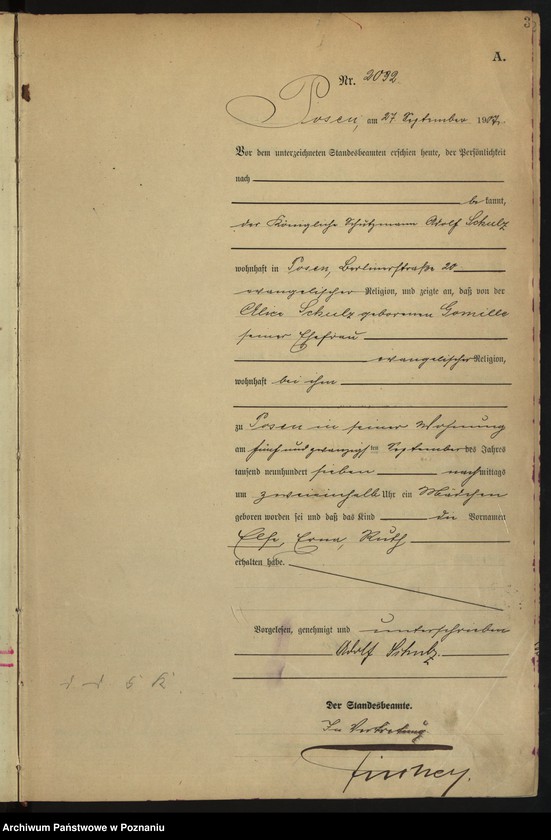 3
A.
Nr. 2092.
Posen, am 27 September 1907.
Vor dem unterzeichneten Standesbeamten erschien heute, der Persönlichkeit
nach
bekannt,
der Königliche Schutzmann Adolf Schulz
wohnhaft in Posen, Berlinerstraße 20
evangelischer Religion, und zeigte an, daß von der
Alice Schulz geborenen Gomille
seiner Ehefrau
evangelischer Religion,
wohnhaft bei ihm
zu Posen in seiner Wohnung
am fünf und zwanzigsten September des Jahres
tausend neunhundert sieben nachmittags
um zweieinhalb Uhr ein Mädchen
geboren worden sei und daß das Kind die Vornamen
Else, Erna, Ruth
erhalten habe.
Vorgelesen, genehmigt und unterschrieben
Adolf Schulz.
Der Standesbeamte.
In Vertretung
Archiwum Państwowe w Poznaniu